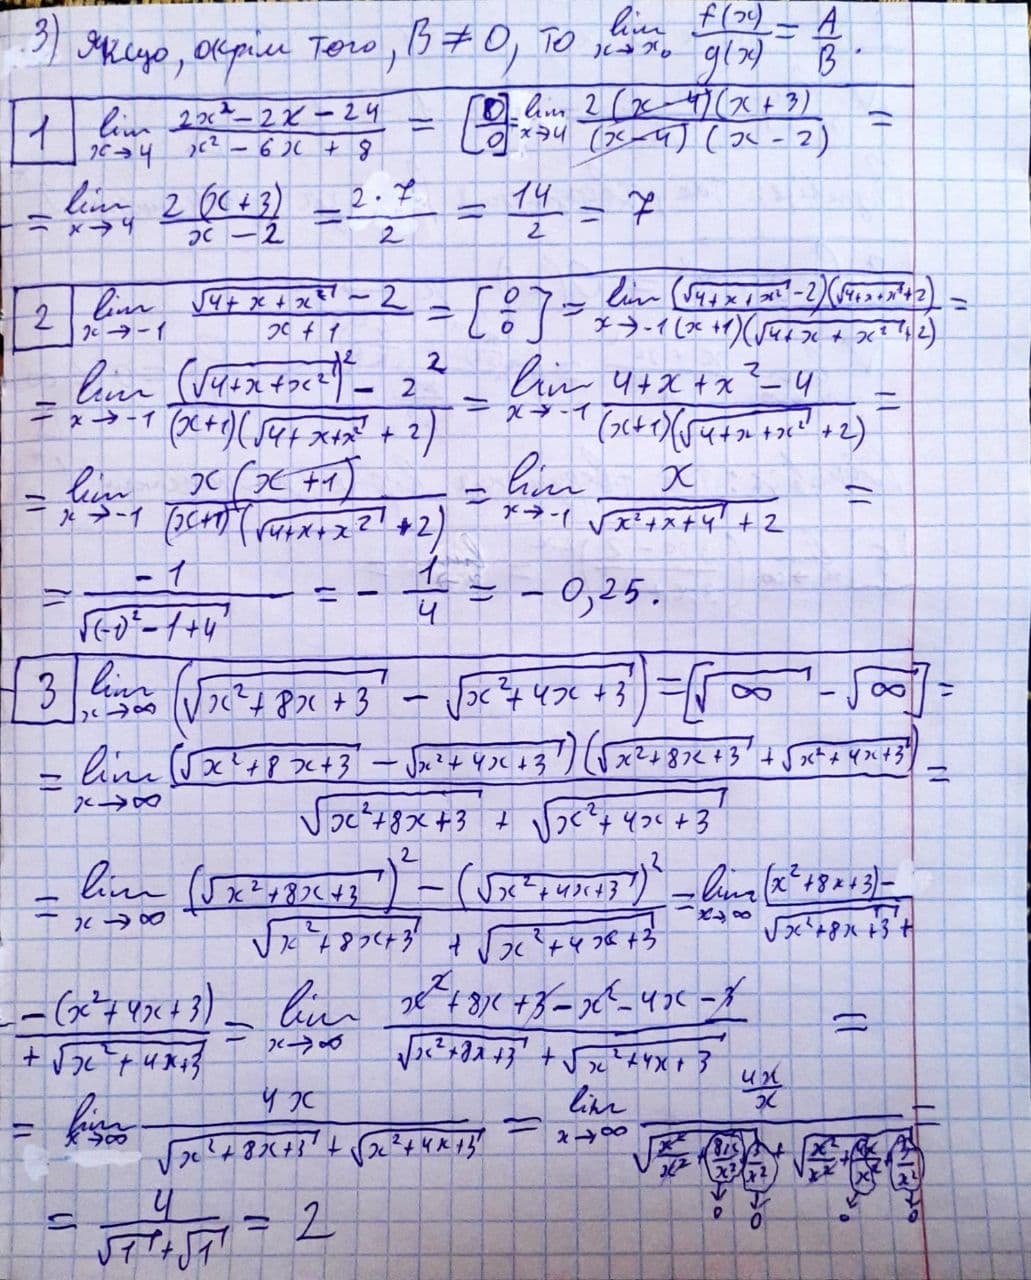 3) Якщо, окрім того, B ≠ 0, то lim x→x₀ f(x)/g(x) = A/B.
1 lim x→4 (2x² - 2x - 24)/(x² - 6x + 8) = [0/0] = lim x→4 2(x-4)(x+3)/((x-4)(x-2)) =
= lim x→4 2(x+3)/(x-2) = 2·7/2 = 14/2 = 7
2 lim x→-1 (√(4+x+x²) - 2)/(x+1) = [0/0] = lim x→-1 (√(4+x+x²) - 2)(√(4+x+x²) + 2)/((x+1)(√(4+x+x²) + 2)) =
= lim x→-1 ((√(4+x+x²))² - 2²)/((x+1)(√(4+x+x²) + 2)) = lim x→-1 (4+x+x²-4)/((x+1)(√(4+x+x²) + 2)) =
= lim x→-1 x(x+1)/((x+1)(√(4+x+x²) + 2)) = lim x→-1 x/(√(x²+x+4) + 2) =
= -1/√((-1)²-1+4) = -1/4 = -0,25.
3 lim x→∞ (√(x²+8x+3) - √(x²+4x+3)) = [√∞ - √∞] =
= lim x→∞ (√(x²+8x+3) - √(x²+4x+3))(√(x²+8x+3) + √(x²+4x+3))/(√(x²+8x+3) + √(x²+4x+3)) =
= lim x→∞ ((√(x²+8x+3))² - (√(x²+4x+3))²)/(√(x²+8x+3) + √(x²+4x+3)) = lim x→∞ (x²+8x+3)-/√(x²+8x+3)+
-(x²+4x+3)/+√(x²+4x+3) = lim x→∞ (x²+8x+3-x²-4x-3)/(√(x²+8x+3) + √(x²+4x+3)) =
= lim x→∞ 4x/(√(x²+8x+3) + √(x²+4x+3)) = lim x→∞ (4x/x)/(√(x²/x²+8x/x²+3/x²) + √(x²/x²+4x/x²+3/x²)) =
0 0 0 0
= 4/(√1+√1) = 2